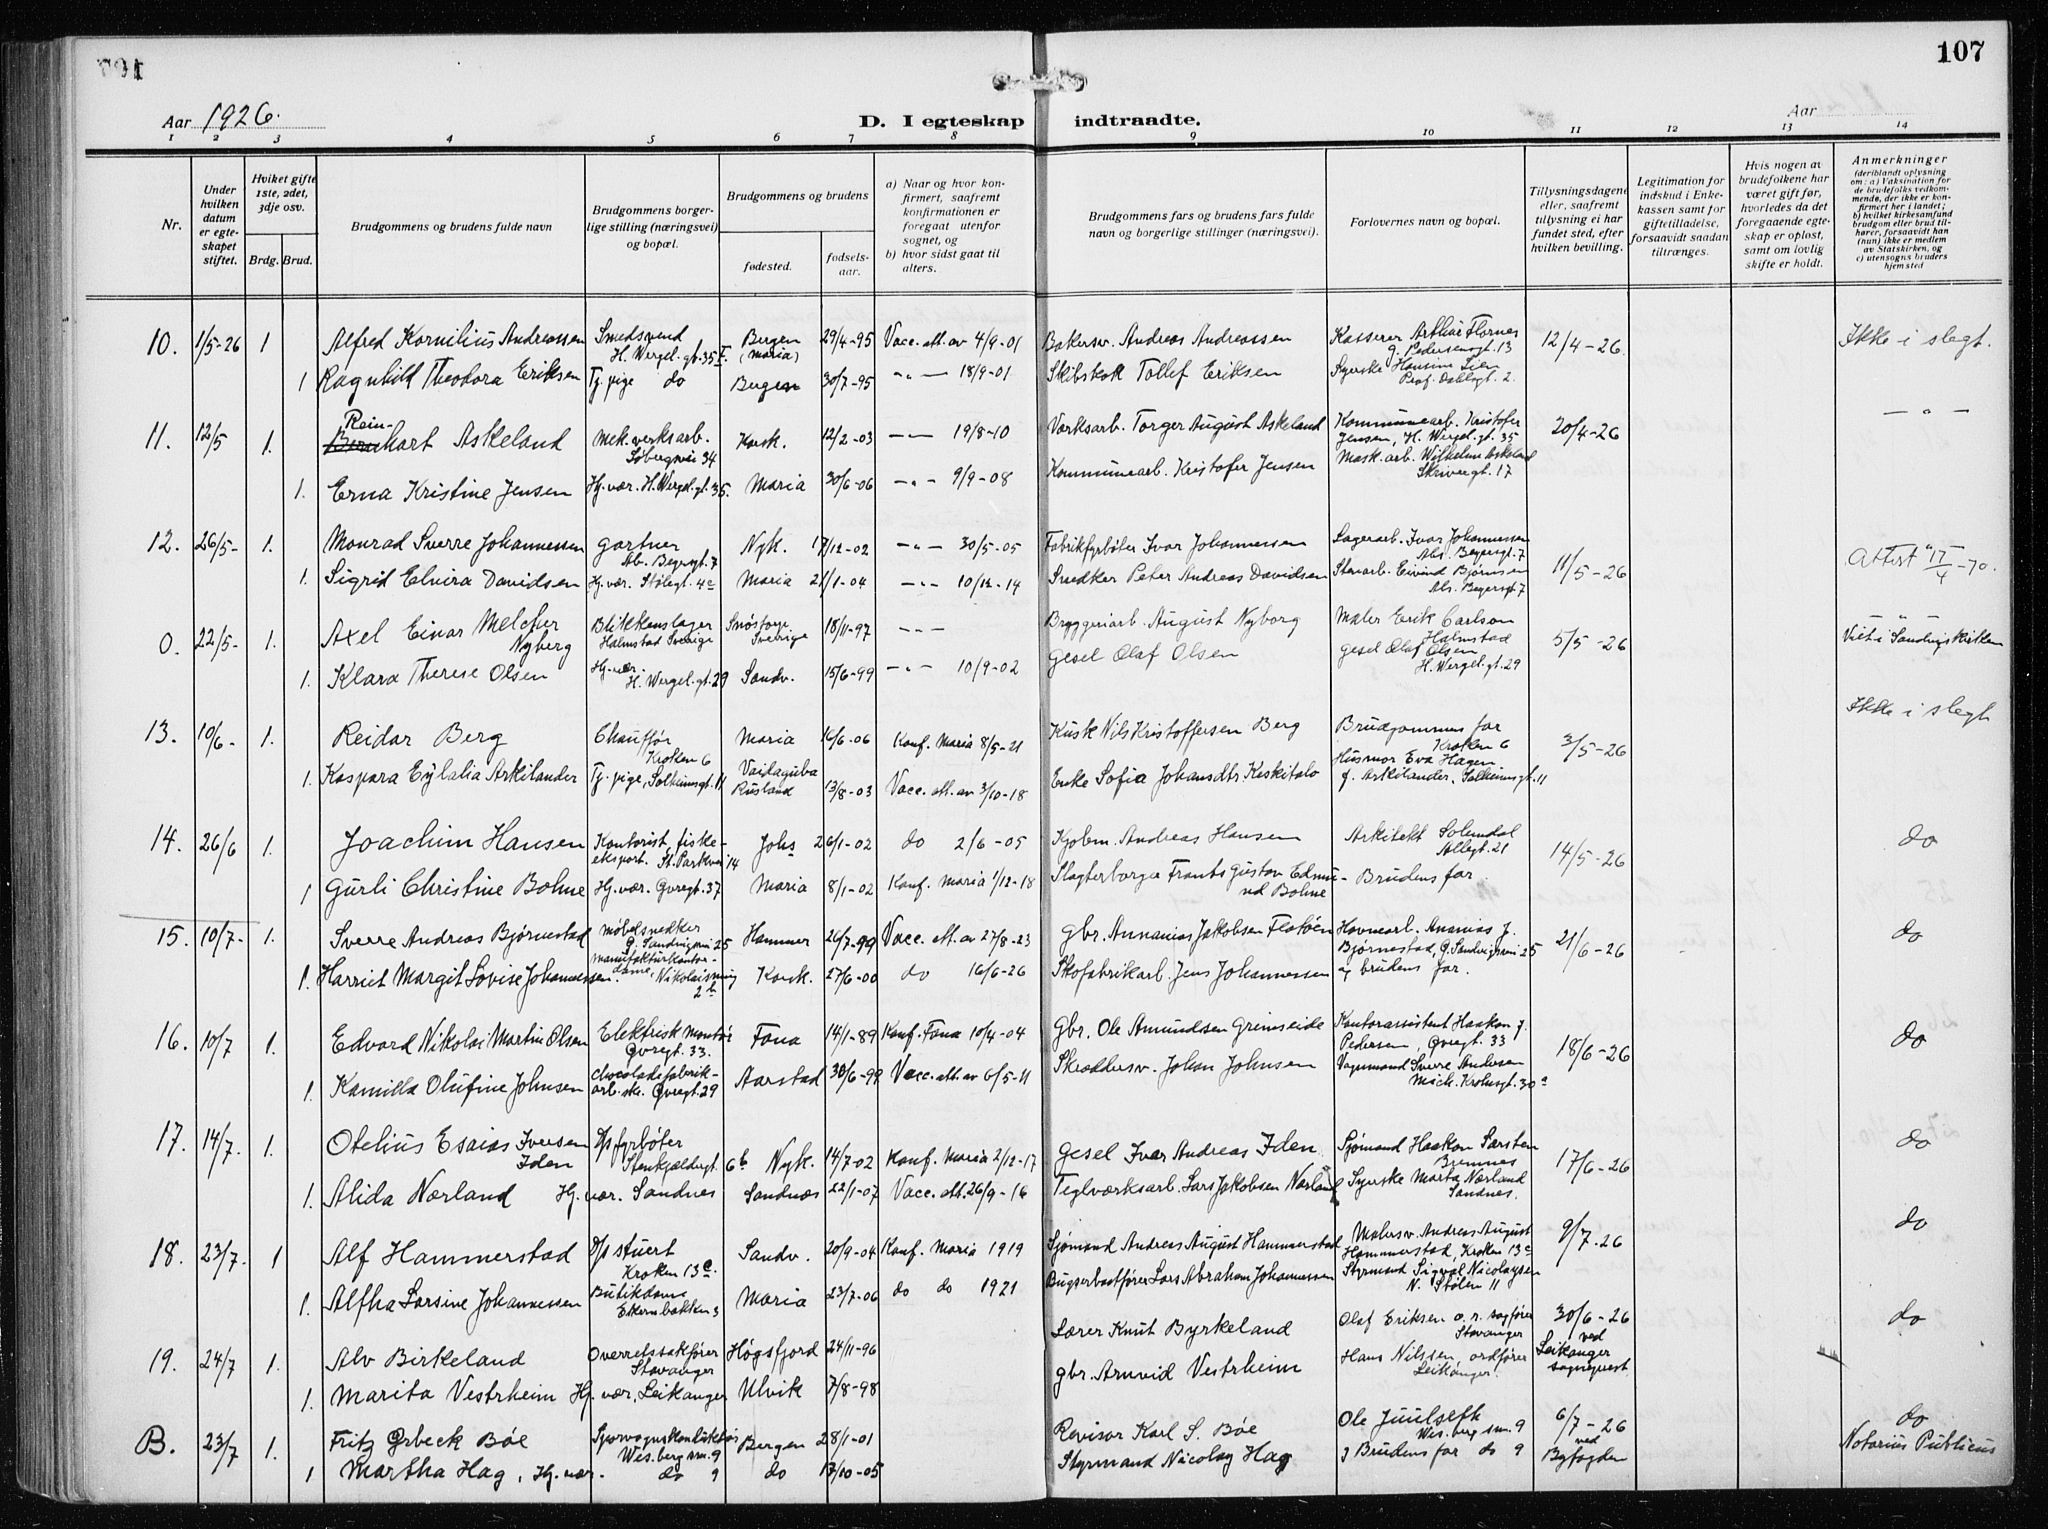 107
Aar 1926.
D. I egteskap indtraadte.
Aar
1 2 3 4 5 6 7 8 9 10 11 12 13 14
Nr.
Under hvilken datum er egteskapet stiftet.
Hviket gifte 1ste, 2det, 3dje osv.
Brdg. Brud.
Brudgommens og brudens fulde navn
Brudgommens borgerlige stilling (næringsvei) og bopæl.
Brudgommens og brudens
fødested.
fødselsaar.
a) Naar og hvor konfirmert, saafremt konfirmationen er foregaat utenfor sognet, og
b) hvor sidst gaat til alters.
Brudgommens fars og brudens fars fulde navn og borgerlige stillinger (næringsvei).
Forlovernes navn og bopæl.
Tillysningsdagene eller, saafremt tillysning ei har fundet sted, efter hvilken bevilling.
Legitimation for indskud i Enkekassen samt for giftetilladelse, forsaavidt saadan tiltrænges.
Hvis nogen av brudefolkene har været gift før, hvorledes da det foregaaende egteskap er opløst, samt om lovlig skifte er holdt.
Anmerkninger (deriblandt oplysning om: a) Vaksination for de brudefolks vedkommende, der ikke er konfirmert her i landet; b) hvilket kirkesamfund brudgom eller brud tilhører, forsaavidt han (hun) ikke er medlem av Statskirken, og c) utensogns bruders hjemsted
10. 1/5-26 1 Alfred Kornilius Andreassen Smedsvend H. Wergel. gt. 35 Bergen (Maria) 29/4-95 Vacc. att. av 4/9-01 Bakersv. Andreas Andreassen Kasserer Arthur Flornes g. Pedersensgt. 13 12/4-26. Ikke i slegt.
1 Ragnhild Theodora Eriksen Tj. pige do Bergen 30/7-95 -"- 18/9-01 Skibskok Tollef Eriksen Syerske Hansine Lien Prof. Dahlsgt. 2.
11. 12/5 1. Rein- hart Askeland Mek. verksarb. Søbergsvei 34 Kosk. 12/2-03 -"- 19/8-10 Værksarb. Torger August Askeland Kommunearb. Kristofer Jensen, H. Wergel. gt. 35 Mask. arb. Wilhelm Askeland Skrivergt. 17 20/4-26 - " -
1. Erna Kristine Jensen Hj. vær. H. Wergel. gt. 35. Maria 30/6-06 -"- 9/9-08 Kommunearb. Kristofer Jensen
12. 26/5- 1. Monrad Sverre Johannessen Gartner Ab. Beyersgt. 7 Nyk. 17/12-02 -"- 30/5-05 Fabrikfyrbøter Ivar Johannessen Lagerarb. Ivar Johannessen Abs. Beyersgt. 7 11/5-26 Attest 17/4-70.
1. Sigrid Elvira Davidsen Hj. vær. Stølegt. 4c Maria 21/1-04 -"- 10/12-14 Snedker Peter Andreas Davidsen Stenarb. Eivind Bjørnsen Abs. Beyersgt 7
0. 22/5- 1. Axel Einar Melcher Nyberg Blikkenslager Halmstad Sverige Snöstorp Sverige 18/11-97 -"- Bryggeriarb. August Nyborg Maler Erik Carlson Halmstad 5/5-26 - " - Viet i Sandvigskirken
1. Klara Therese Olsen Hj. vær. H. Wergel. gt. 29 Sandv. 15/6-99 -"- 10/9-02 Gesel Olaf Olsen Gesel Olaf Olsen H. Wergel. gt. 29
13. 10/6- 1. Reidar Berg Chauffør Kroken 6 Maria 16/6-06 Konf. Maria 8/5-21 Kusk Nils Kristoffersen Berg Brudgommens far Kroken 6 3/5-26 Ikke i slegt
1. Kaspara Eylalia Arkilander Tj. pige, Solheimsgt. 11 Vaidaguba Rusland 13/8-03 Vacc. att. av 3/10-18 Enke Sofia Johansdtr. Keskitalo Husmor Eva Hagen f. Arkilander, Solheimsgt. 11
14. 26/6 1. Joachim Hansen Kontorist, fiskeeksport. St. Parkvei 14 Johs 26/1-02 do 2/6-05 Kjøbm. Andreas Hansen Arkitekt Solemdal Allegt. 21 14/5-26 do
1 Gurli Christine Bohne Hj. vær. Øvregt. 37 Maria 8/1-02 Konf. Maria 1/12-18 Slagterborger Frants Gustav Edmund Bohne - Brudens far
15. 10/7- 1. Sverre Andreas Bjørnestad Møbelsnedker G. Sandvigsvei 25 Hammer 26/7-99 Vacc. att. av 27/8-23 Gbr. Annanias Jakobsen Flatøen Havnearb. Ananias J. Bjørnestad, G. Sandvigsvei 25 og brudens far. 21/6-26 do
1. Harriet Margit Lovise Johannessen. Manufakturkontordame, Nikolaismug 2b Korsk. 27/6-00 do 16/6-26 Skofabrikarb. Jens Johannessen
16. 10/7 1. Edvard Nikolai Martin Olsen Elektrisk montør Øvregt. 33. Fana 14/1-89 Konf. Fana 10/4-04 Gbr. Ole Amundsen Grimseide Kontorassistent Haakon J. Pedersen, Øvregt. 33 18/6-26 do
1. Kamilla Olufine Johnsen Chocoladefabrikarb.ske. Øvregt. 29 Aarstad 30/6-99 Vacc. att. av 6/5-11 Skræddersv. Johan Johnsen Vognmand Sverre Andersen Mich. Krohnsgt. 30a
17. 14/7. 1. Otelius Esaias Iversen Iden D/s fyrbøter Stenkjældergt. 6b Nyk. 14/7-02 Konf. Maria 2/12-17 Gesel Ivar Andreas Iden Sjømand Haakon Larsten Bremnes 17/6-26 do
1. Alida Nærland Hj. vær. Sandnes Sandnæs 22/1-07 Vacc. att. 26/9-16 Teglværksarb. Lars Jakobsen Nærland Syerske Marta Nærland Sandnes.
18. 23/7. 1 Alf Hammerstad D/s stuert Kroken 13c Sandv. 20/9-04 Konf. Maria 1919 Sjømand Andreas August Hammerstad Malersv. Andreas August Hammerstad, Kroken 13c 9/7-26 do
1. Alfha Larsine Johannessen Butikdame Ekernbakken 3 Maria 23/7-06 do do 1921 Bugserbaatfører Lars Abraham Johannessen Styrmand Sigval Nicolaysen N. Stølen 11
19. 24/7 1. Alv Birkeland Overretssakfører Stavanger Høgsfjord 24/11-96 Lærer Knut Byrkeland Olaf Eriksen o. r. sagfører Stavanger 30/6-26 ved Leikanger sogneprest. do
1. Marita Vestrheim Hj. vær, Leikanger Ulvik 7/8-98 Gbr. Arnvid Vestrheim Hans Nilssen, ordfører Leikanger.
B. 23/7 1. Fritz Ørbeck Bøe Sporvognskonduktør Wes. berg sm. 9 Bergen 28/1-01 Revisor Karl S. Bøe Ole Juulseth Wes. berg sm. 9 6/7-26 ved Byfogden do Notarius Publicus
1 Martha Hag, Hj. vær. do 9 do 13/10-05 Styrmand Nicolay Hag Brudens far do 9